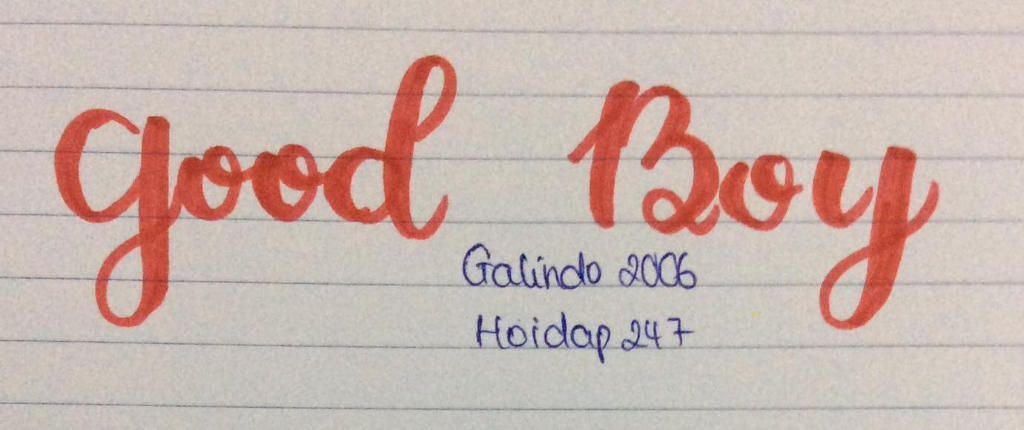 Good Boy
Galindo 2006
Hoidap 247